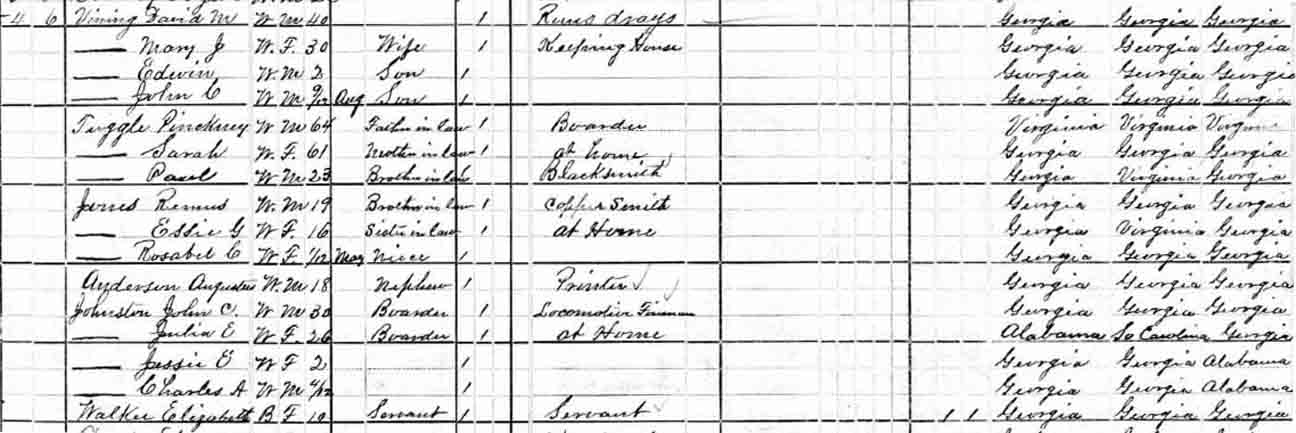 4 6 Vining David M W M 40 1 Runs drays Georgia Georgia Georgia
— Mary J W. F. 30 Wife 1 Keeping House Georgia Georgia Georgia
— Edwin W. M 2 Son 1 Georgia Georgia Georgia
— John C W. M 9/12 Aug Son 1 Georgia Georgia Georgia
Tuggle Pinckney W M 64 Father in law 1 Boarder Virginia Virginia Virginia
— Sarah W. F. 61 Mother in law 1 at home Georgia Georgia Georgia
— Paul W M 23 Brother in law Blacksmith Georgia Virginia Georgia
Jones Remus W. M 19 Brother in law 1 Copper Smith Georgia Georgia Georgia
— Essie G W F. 16 Sister in law 1 at Home Georgia Virginia Georgia
— Rosabel C W F 1/12 May Niece 1 Georgia Georgia Georgia
Anderson Augustus W. M 18 Nephew 1 Printer Georgia Georgia Georgia
Johnston John C. W M 30 Boarder 1 Locomotive Fireman Georgia Georgia Georgia
— Julia E W F. 26 Boarder 1 at Home Alabama So Carolina Georgia
— Jessie E W F 2 1 Georgia Georgia Alabama
— Charles A W M 4/12 1 Georgia Georgia Alabama
Walker Elizabeth B F 10 Servant 1 Servant 1 1 Georgia Georgia Georgia